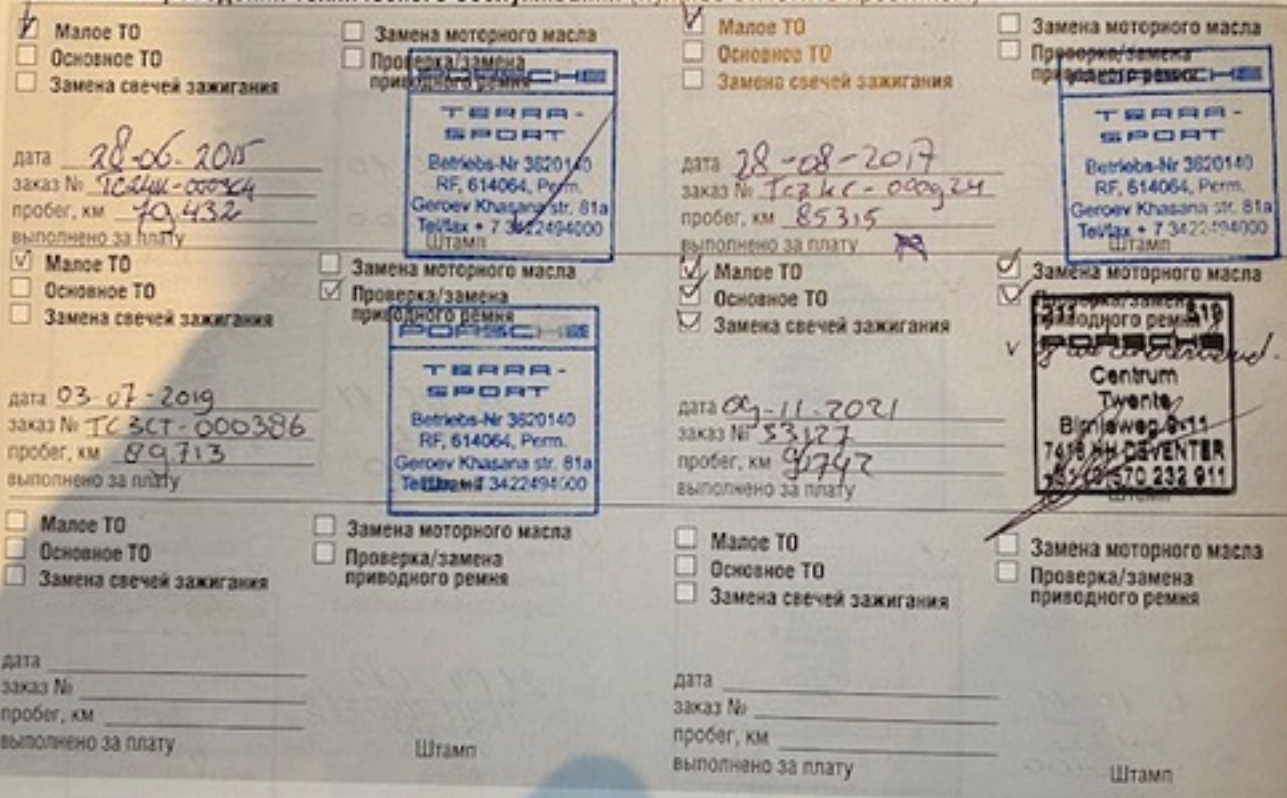 Малое ТО
Основное ТО
Замена свечей зажигания
Замена моторного масла
Проверка/замена
приводного ремня
PORSCHE
TERRA-
SPORT
Betriebs-Nr 3620140
RF, 614064, Perm.
Geroev Khasana str. 81a
Tel/fax + 7 3422494000
дата 28-06-2015
заказ №
пробег, км 79432
выполнено за плату
Штамп
Малое ТО
Основное ТО
Замена свечей зажигания
Замена моторного масла
Проверка/замена
приводного ремня
PORSCHE
TERRA-
SPORT
Betriebs-Nr 3620140
RF, 614064, Perm.
Geroev Khasana str. 81a
Tel/fax + 7 3422494000
дата 28-08-2017
заказ №
пробег, км 85315
выполнено за плату
Штамп
Малое ТО
Основное ТО
Замена свечей зажигания
Замена моторного масла
Проверка/замена
приводного ремня
PORSCHE
TERRA-
SPORT
Betriebs-Nr 3620140
RF, 614064, Perm.
Geroev Khasana str. 81a
Tel/fax + 7 3422494000
дата 03-07-2019
заказ № TC3CT-000386
пробег, км 89713
выполнено за плату
Малое ТО
Основное ТО
Замена свечей зажигания
Замена моторного масла
Проверка/замена
приводного ремня
211 519
PORSCHE
Centrum
Twente
9-11
DEVENTER
570 232 911
дата 09-11-2021
заказ № 53127
пробег, км 91742
выполнено за плату
Штамп
Малое ТО
Основное ТО
Замена свечей зажигания
Замена моторного масла
Проверка/замена
приводного ремня
дата
заказ №
пробег, км
выполнено за плату
Штамп
Малое ТО
Основное ТО
Замена свечей зажигания
Замена моторного масла
Проверка/замена
приводного ремня
дата
заказ №
пробег, км
выполнено за плату
Штамп